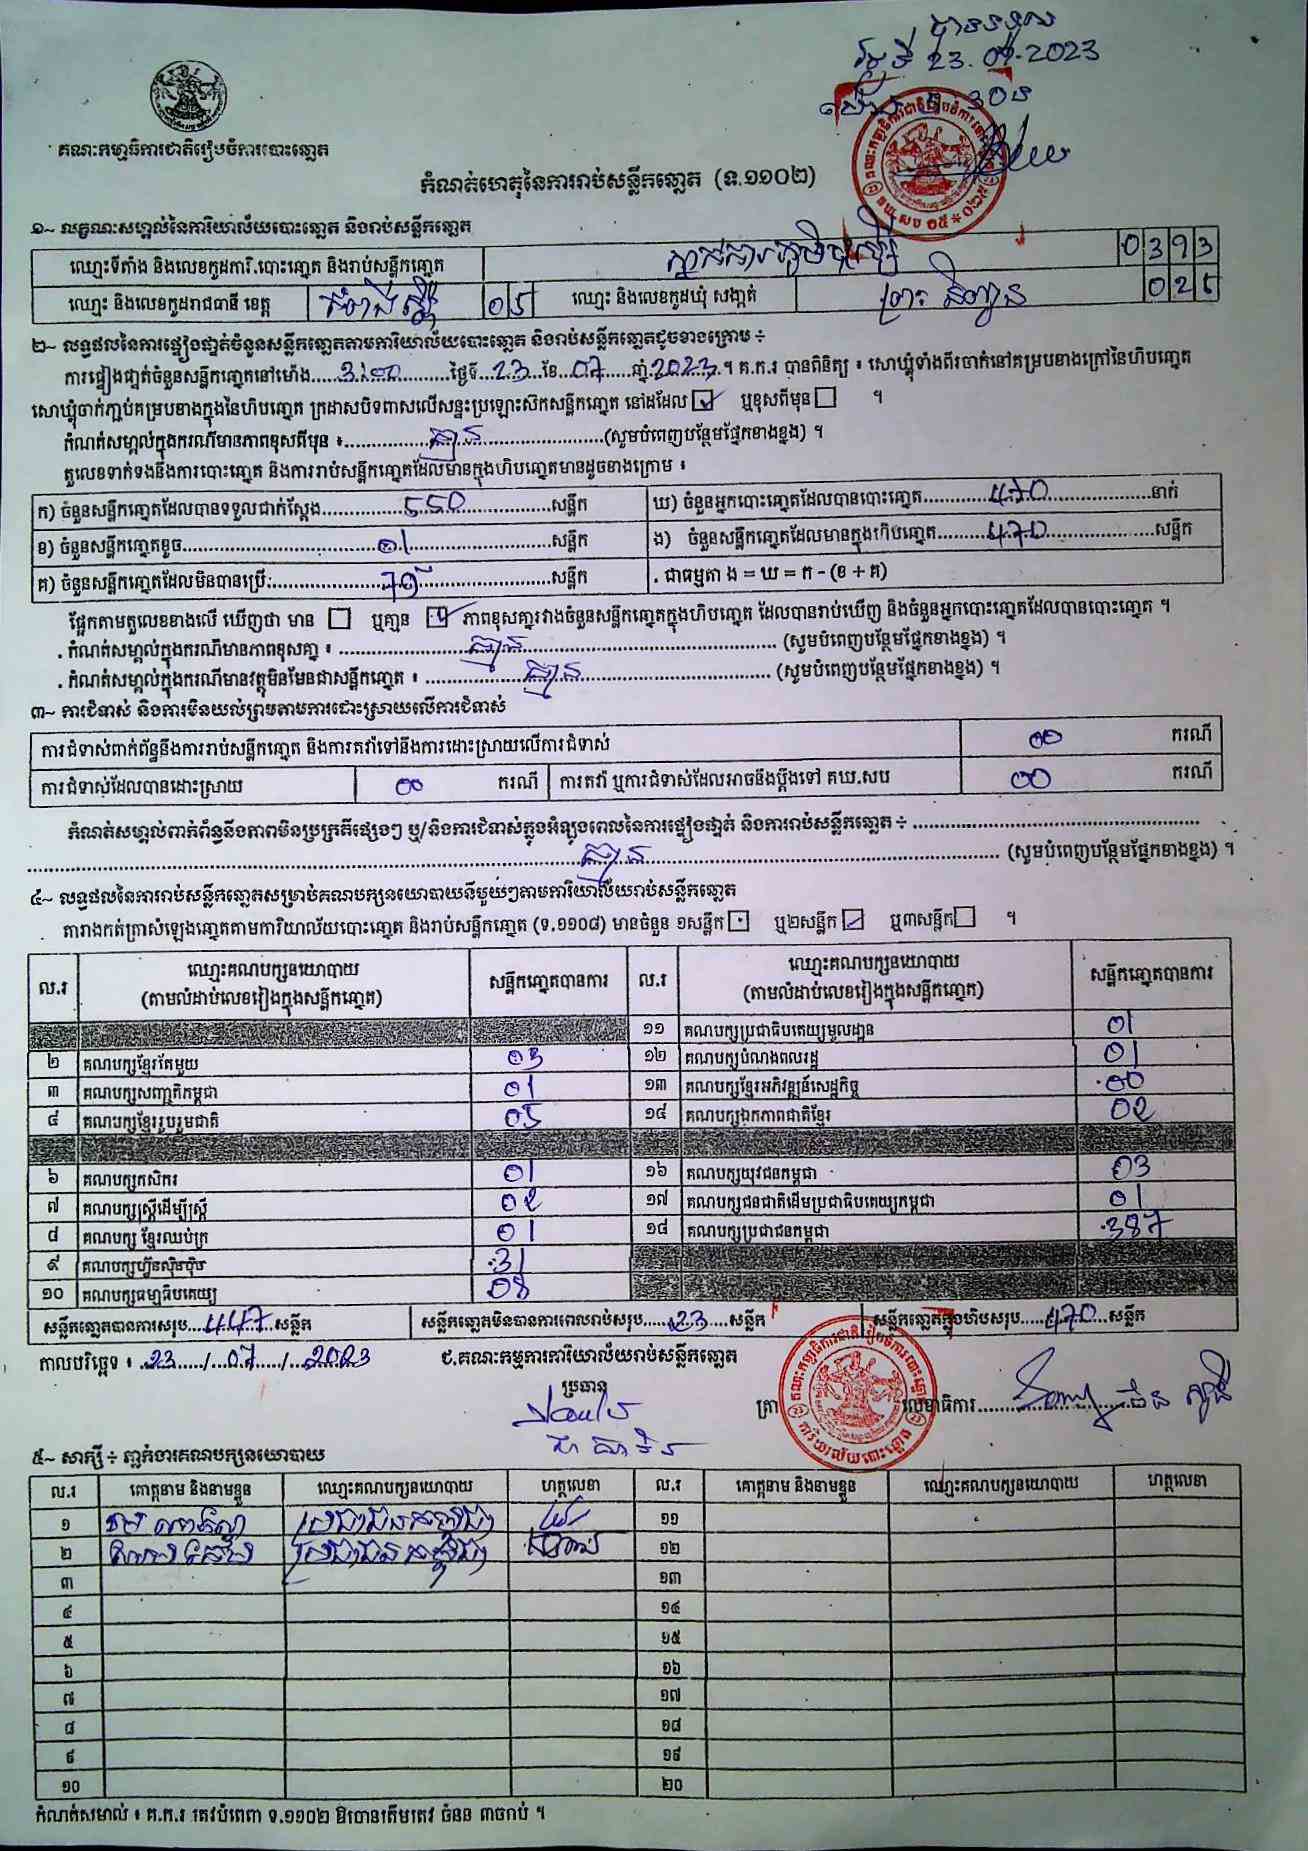 បានទទួល
ថ្ងៃទី 23.07.2023
គណៈកម្មាធិការជាតិរៀបចំការបោះឆ្នោត
កំណត់ហេតុនៃការរាប់សន្លឹកឆ្នោត (ទ.១១០២)
១~ លក្ខណៈសម្គាល់នៃការិយាល័យបោះឆ្នោត និងរាប់សន្លឹកឆ្នោត
ឈ្មោះទីតាំង និងលេខកូដការិ.បោះឆ្នោត និងរាប់សន្លឹកឆ្នោត 0393
ឈ្មោះ និងលេខកូដរាជធានី ខេត្ត កំពង់ស្ពឺ 05 ឈ្មោះ និងលេខកូដឃុំ សង្កាត់ ព្រះនិព្វាន 025
២~ លទ្ធផលនៃការផ្ទៀងផ្ទាត់ចំនួនសន្លឹកឆ្នោតតាមការិយាល័យបោះឆ្នោត និងរាប់សន្លឹកឆ្នោតដូចខាងក្រោម ÷
ការផ្ទៀងផ្ទាត់ចំនួនសន្លឹកឆ្នោតនៅម៉ោង 3:00 ថ្ងៃទី 23 ខែ 07 ឆ្នាំ 2023 ។ គ.ក.រ បានពិនិត្យ ៖ សោឃ្លុំទាំងពីរចាក់នៅគម្របខាងក្រៅនៃហិបឆ្នោត
សោឃ្លុំចាក់ភ្ជាប់គម្របខាងក្នុងនៃហិបឆ្នោត ក្រដាសបិទពាសលើសន្ទះប្រឡោះស៊កសន្លឹកឆ្នោត នៅដដែល ☑ ឬខុសពីមុន ☐ ។
កំណត់សម្គាល់ក្នុងករណីមានភាពខុសពីមុន ៖ គ្មាន (សូមបំពេញបន្ថែមផ្នែកខាងខ្នង) ។
តួលេខទាក់ទងនឹងការបោះឆ្នោត និងការរាប់សន្លឹកឆ្នោតដែលមានក្នុងហិបឆ្នោតមានដូចខាងក្រោម ៖
ក) ចំនួនសន្លឹកឆ្នោតដែលបានទទួលជាក់ស្តែង 550 សន្លឹក ឃ) ចំនួនអ្នកបោះឆ្នោតដែលបានបោះឆ្នោត 470 នាក់
ខ) ចំនួនសន្លឹកឆ្នោតខូច 01 សន្លឹក ង) ចំនួនសន្លឹកឆ្នោតដែលមានក្នុងហិបឆ្នោត 470 សន្លឹក
គ) ចំនួនសន្លឹកឆ្នោតដែលមិនបានប្រើ 79 សន្លឹក . ជាធម្មតា ង = ឃ = ក - (ខ + គ)
ផ្អែកតាមតួលេខខាងលើ ឃើញថា មាន ☐ ឬគ្មាន ☑ ភាពខុសគ្នារវាងចំនួនសន្លឹកឆ្នោតក្នុងហិបឆ្នោត ដែលបានរាប់ឃើញ និងចំនួនអ្នកបោះឆ្នោតដែលបានបោះឆ្នោត ។
. កំណត់សម្គាល់ក្នុងករណីមានភាពខុសគ្នា ៖ គ្មាន (សូមបំពេញបន្ថែមផ្នែកខាងខ្នង) ។
. កំណត់សម្គាល់ក្នុងករណីមានវត្ថុមិនមែនជាសន្លឹកឆ្នោត ៖ គ្មាន (សូមបំពេញបន្ថែមផ្នែកខាងខ្នង) ។
៣~ ការជំទាស់ និងការមិនយល់ព្រមតាមការដោះស្រាយលើការជំទាស់
ការជំទាស់ពាក់ព័ន្ធនឹងការរាប់សន្លឹកឆ្នោត និងការតវ៉ាទៅនឹងការដោះស្រាយលើការជំទាស់ 00 ករណី
ការជំទាស់ដែលបានដោះស្រាយ 00 ករណី ការតវ៉ា ឬការជំទាស់ដែលអាចនឹងប្តឹងទៅ គឃ.សប 00 ករណី
កំណត់សម្គាល់ពាក់ព័ន្ធនឹងភាពមិនប្រក្រតីផ្សេងៗ ឬ/និងការជំទាស់ក្នុងអំឡុងពេលនៃការផ្ទៀងផ្ទាត់ និងការរាប់សន្លឹកឆ្នោត ÷
គ្មាន (សូមបំពេញបន្ថែមផ្នែកខាងខ្នង) ។
៤~ លទ្ធផលនៃការរាប់សន្លឹកឆ្នោតសម្រាប់គណបក្សនយោបាយនីមួយៗតាមការិយាល័យរាប់សន្លឹកឆ្នោត
តារាងកត់ត្រាសំឡេងឆ្នោតតាមការិយាល័យបោះឆ្នោត និងរាប់សន្លឹកឆ្នោត (ទ.១១០៨) មានចំនួន ១សន្លឹក ☐ ឬ២សន្លឹក ☑ ឬ៣សន្លឹក ☐ ។
ល.រ ឈ្មោះគណបក្សនយោបាយ (តាមលំដាប់លេខរៀងក្នុងសន្លឹកឆ្នោត) សន្លឹកឆ្នោតបានការ ល.រ ឈ្មោះគណបក្សនយោបាយ (តាមលំដាប់លេខរៀងក្នុងសន្លឹកឆ្នោត) សន្លឹកឆ្នោតបានការ
១១ គណបក្សប្រជាធិបតេយ្យមូលដ្ឋាន 01
២ គណបក្សខ្មែរតែមួយ 03 ១២ គណបក្សបំណងពលរដ្ឋ 01
៣ គណបក្សសញ្ជាតិកម្ពុជា 01 ១៣ គណបក្សខ្មែរអភិវឌ្ឍន៍សេដ្ឋកិច្ច 00
៤ គណបក្សខ្មែររួបរួមជាតិ 05 ១៤ គណបក្សឯកភាពជាតិខ្មែរ 02
៦ គណបក្សកសិករ 01 ១៦ គណបក្សយុវជនកម្ពុជា 03
៧ គណបក្សស្ត្រីដើម្បីស្ត្រី 02 ១៧ គណបក្សជនជាតិដើមប្រជាធិបតេយ្យកម្ពុជា 01
៨ គណបក្ស ខ្មែរឈប់ក្រ 01 ១៨ គណបក្សប្រជាជនកម្ពុជា 387
៩ គណបក្សហ្វ៊ុនស៊ិនប៉ិច 31
១០ គណបក្សធម្មាធិបតេយ្យ 08
សន្លឹកឆ្នោតបានការសរុប 447 សន្លឹក សន្លឹកឆ្នោតមិនបានការពេលរាប់សរុប 23 សន្លឹក សន្លឹកឆ្នោតក្នុងហិបសរុប 470 សន្លឹក
កាលបរិច្ឆេទ ៖ 23 / 07 / 2023 ជ.គណៈកម្មការការិយាល័យរាប់សន្លឹកឆ្នោត
ប្រធាន
ត្រា លេខាធិការ
៥~ សាក្សី ÷ ភ្នាក់ងារគណបក្សនយោបាយ
ល.រ គោត្តនាម និងនាមខ្លួន ឈ្មោះគណបក្សនយោបាយ ហត្ថលេខា ល.រ គោត្តនាម និងនាមខ្លួន ឈ្មោះគណបក្សនយោបាយ ហត្ថលេខា
១ ប្រជាជនកម្ពុជា ១១
២ ប្រជាជនកម្ពុជា ១២
៣ ១៣
៤ ១៤
៥ ១៥
៦ ១៦
៧ ១៧
៨ ១៨
៩ ១៩
១០ ២០
កំណត់សម្គាល់ ៖ គ.ក.រ ត្រូវបំពេញ ទ.១១០២ ឱ្យបានត្រឹមត្រូវ ចំនួន ៣ច្បាប់ ។